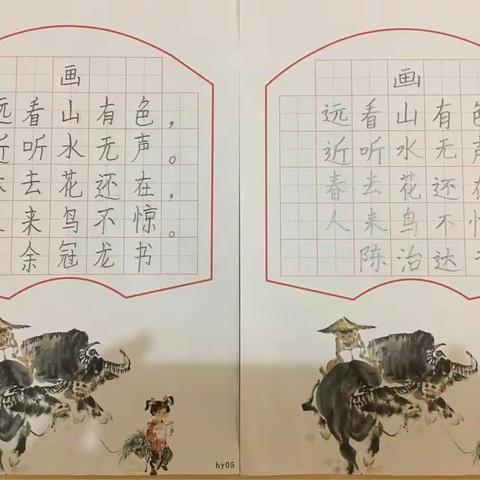 画
远看山有色，
近听水无声。
去花还在，
来鸟不惊。
余冠龙书
hy05
画
远看山有色
近听水无声
春去花还在
人来鸟不惊
陈治达